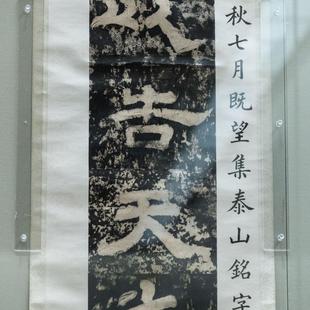 秋七月既望集泰山銘字
吉天